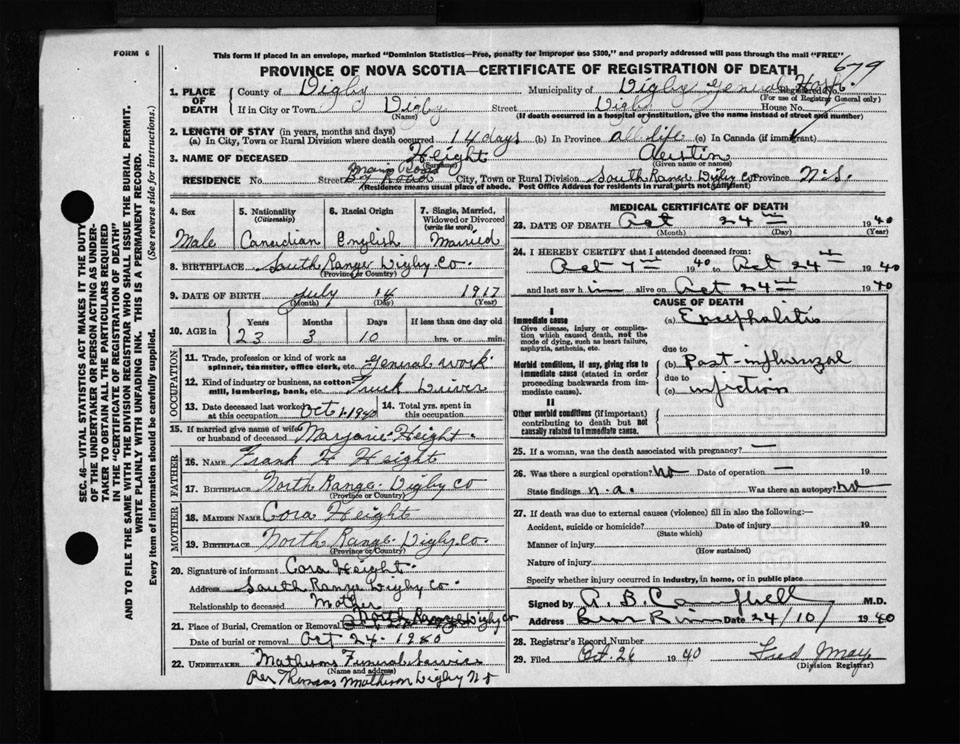 FORM 6
This form if placed in an envelope, marked "Dominion Statistics—Free, penalty for improper use $300," and properly addressed will pass through the mail "FREE"
PROVINCE OF NOVA SCOTIA—CERTIFICATE OF REGISTRATION OF DEATH
679
1. PLACE OF DEATH
County of Digby Municipality of Digby General Hosp. Registered No.
(For use of Registrar General only)
If in City or Town Digby Street Digby House No.
(Name) (If death occurred in a hospital or institution, give the name instead of street and number)
2. LENGTH OF STAY (in years, months and days)
(a) In City, Town or Rural Division where death occurred 14 days (b) In Province all life (c) In Canada (if immigrant)
3. NAME OF DECEASED Height Austin
(Surname) (Given name or names)
RESIDENCE No. Street City, Town or Rural Division South Range Digby Co Province N.S.
(Residence means usual place of abode. Post Office Address for residents in rural parts not sufficient)
4. Sex Male
5. Nationality (Citizenship) Canadian
6. Racial Origin English
7. Single, Married, Widowed or Divorced (write the word) Married
8. BIRTHPLACE South Range Digby Co.
(Province or Country)
9. DATE OF BIRTH July 14 1917
(Month) (Day) (Year)
10. AGE in Years Months Days If less than one day old
23 3 10 hrs. or min.
OCCUPATION
11. Trade, profession or kind of work as spinner, teamster, office clerk, etc. General work
12. Kind of industry or business, as cotton mill, lumbering, bank, etc. Truck Driver
13. Date deceased last worked at this occupation Oct 1-1940 14. Total yrs. spent in this occupation
15. If married give name of wife or husband of deceased Marjorie Height.
FATHER
16. NAME Frank H Height
17. BIRTHPLACE North Range Digby Co
(Province or Country)
MOTHER
18. MAIDEN NAME Cora Height
19. BIRTHPLACE North Range Digby Co.
(Province or Country)
20. Signature of informant Cora Height.
Address South Range Digby Co.
Relationship to deceased Mother
21. Place of Burial, Cremation or Removal North Range Digby Co
Date of burial or removal Oct 24. 1940
22. UNDERTAKER Mathesons Funeral Service
(Name and address)
Per. Thomas Matheson Digby N S
MEDICAL CERTIFICATE OF DEATH
23. DATE OF DEATH Oct 24th 1940
(Month) (Day) (Year)
24. I HEREBY CERTIFY that I attended deceased from:
Oct 7th 1940 to Oct 24th 1940
and last saw him alive on Oct 24th 1940
CAUSE OF DEATH
I
Immediate cause
Give disease, injury or complication which caused death, not the mode of dying, such as heart failure, asphyxia, asthenia, etc.
(a) Encephalitis
due to
Morbid conditions, if any, giving rise to immediate cause (stated in order proceeding backwards from immediate cause).
(b) Post-influenzal
due to
(c) infection
II
Other morbid conditions (if important) contributing to death but not causally related to immediate cause.
25. If a woman, was the death associated with pregnancy? —
26. Was there a surgical operation? no Date of operation — 19
State findings n.a. Was there an autopsy? no
27. If death was due to external causes (violence) fill in also the following:—
Accident, suicide or homicide? Date of injury 19
(State which)
Manner of injury
(How sustained)
Nature of injury
Specify whether injury occurred in industry, in home, or in public place
Signed by A. B. Campbell M.D.
Address Bear River Date 24/10/ 1940
28. Registrar's Record Number
29. Filed Oct. 26 1940 Fred May
(Division Registrar)
SEC. 46—VITAL STATISTICS ACT MAKES IT THE DUTY OF THE UNDERTAKER OR PERSON ACTING AS UNDERTAKER TO OBTAIN ALL THE PARTICULARS REQUIRED IN THE "CERTIFICATE OF REGISTRATION OF DEATH" AND TO FILE THE SAME WITH THE DIVISION REGISTRAR WHO SHALL ISSUE THE BURIAL PERMIT.
WRITE PLAINLY WITH UNFADING INK. THIS IS A PERMANENT RECORD.
Every item of information should be carefully supplied. (See reverse side for instructions.)